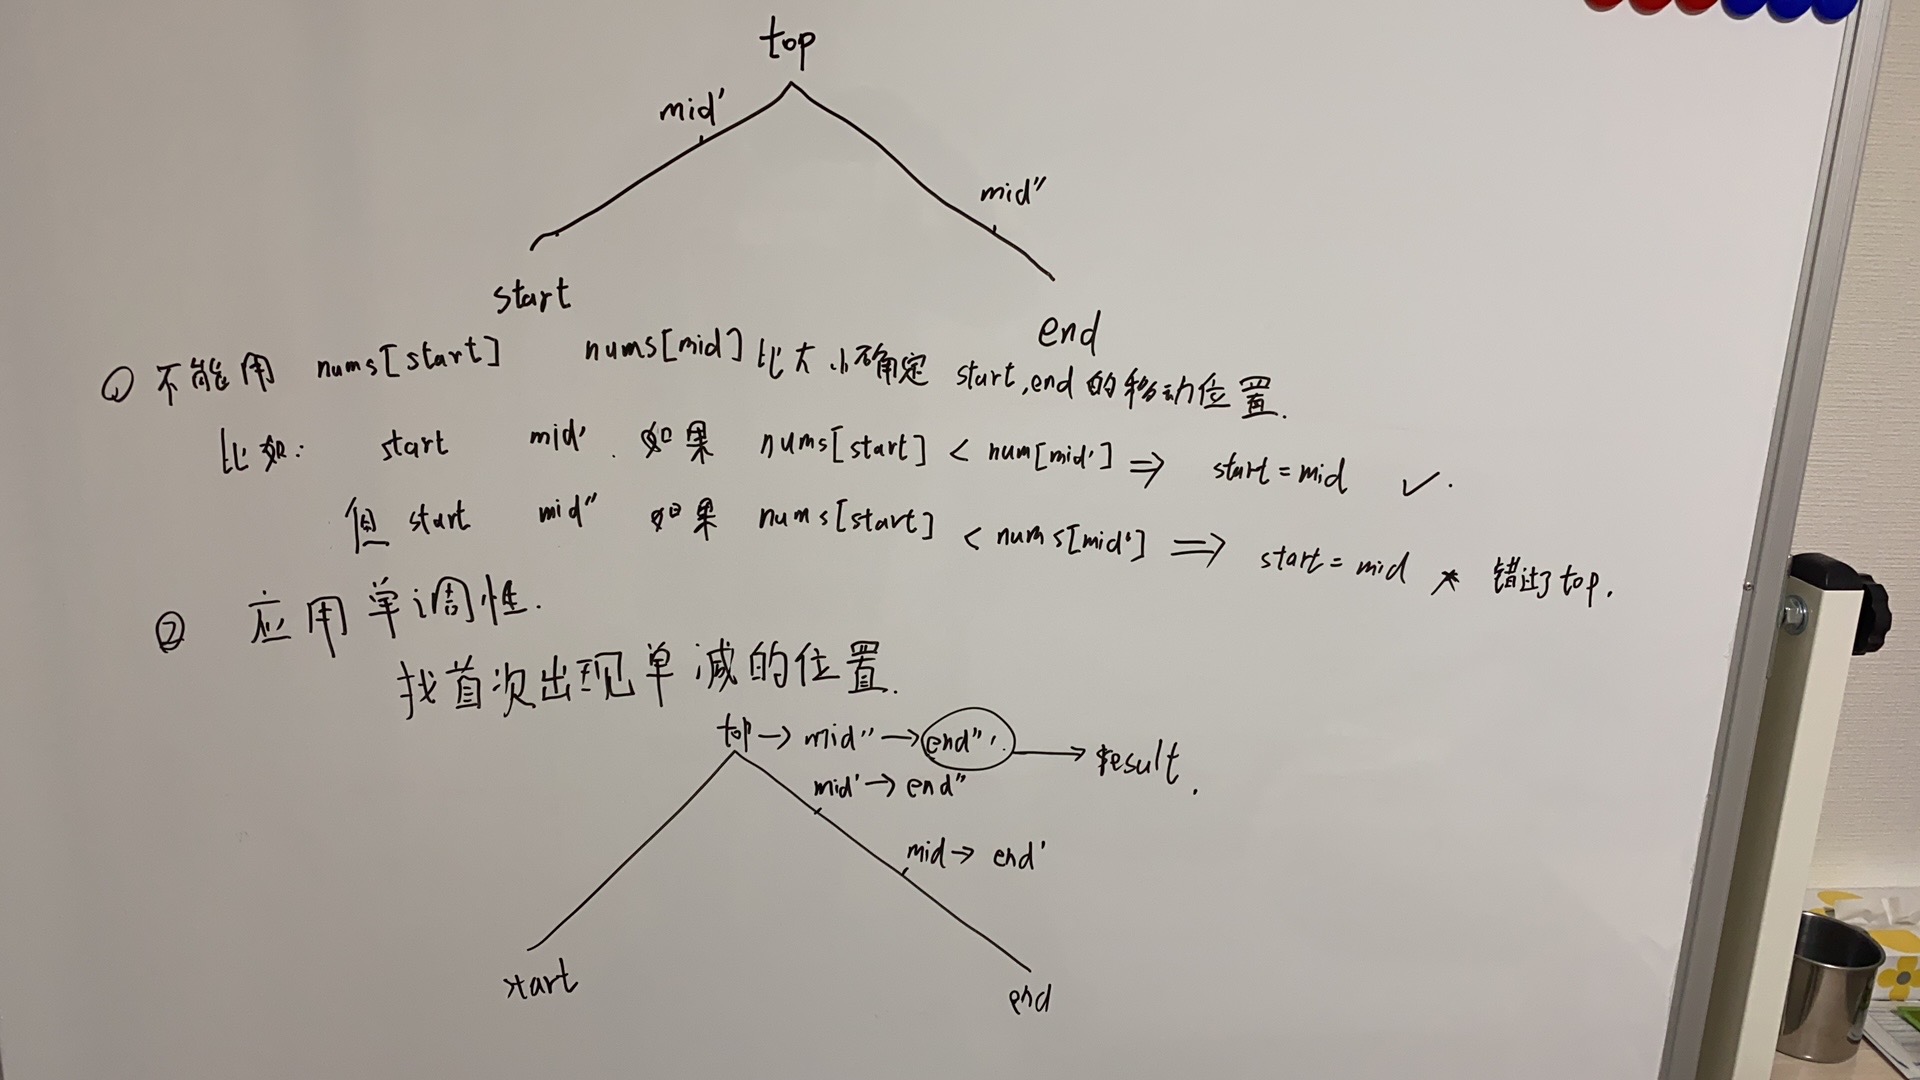 top
mid'
mid"
start
end
① 不能用 nums[start] nums[mid] 比大小确定 start,end 的移动位置.
比如: start mid'. 如果 nums[start] < num[mid'] ⇒ start = mid ✓.
但 start mid" 如果 nums[start] < nums[mid'] ⇒ start = mid × 错过了top.
② 应用单调性.
找首次出现单减的位置.
top → mid" → end"' → result.
mid' → end"
mid → end'
start
end